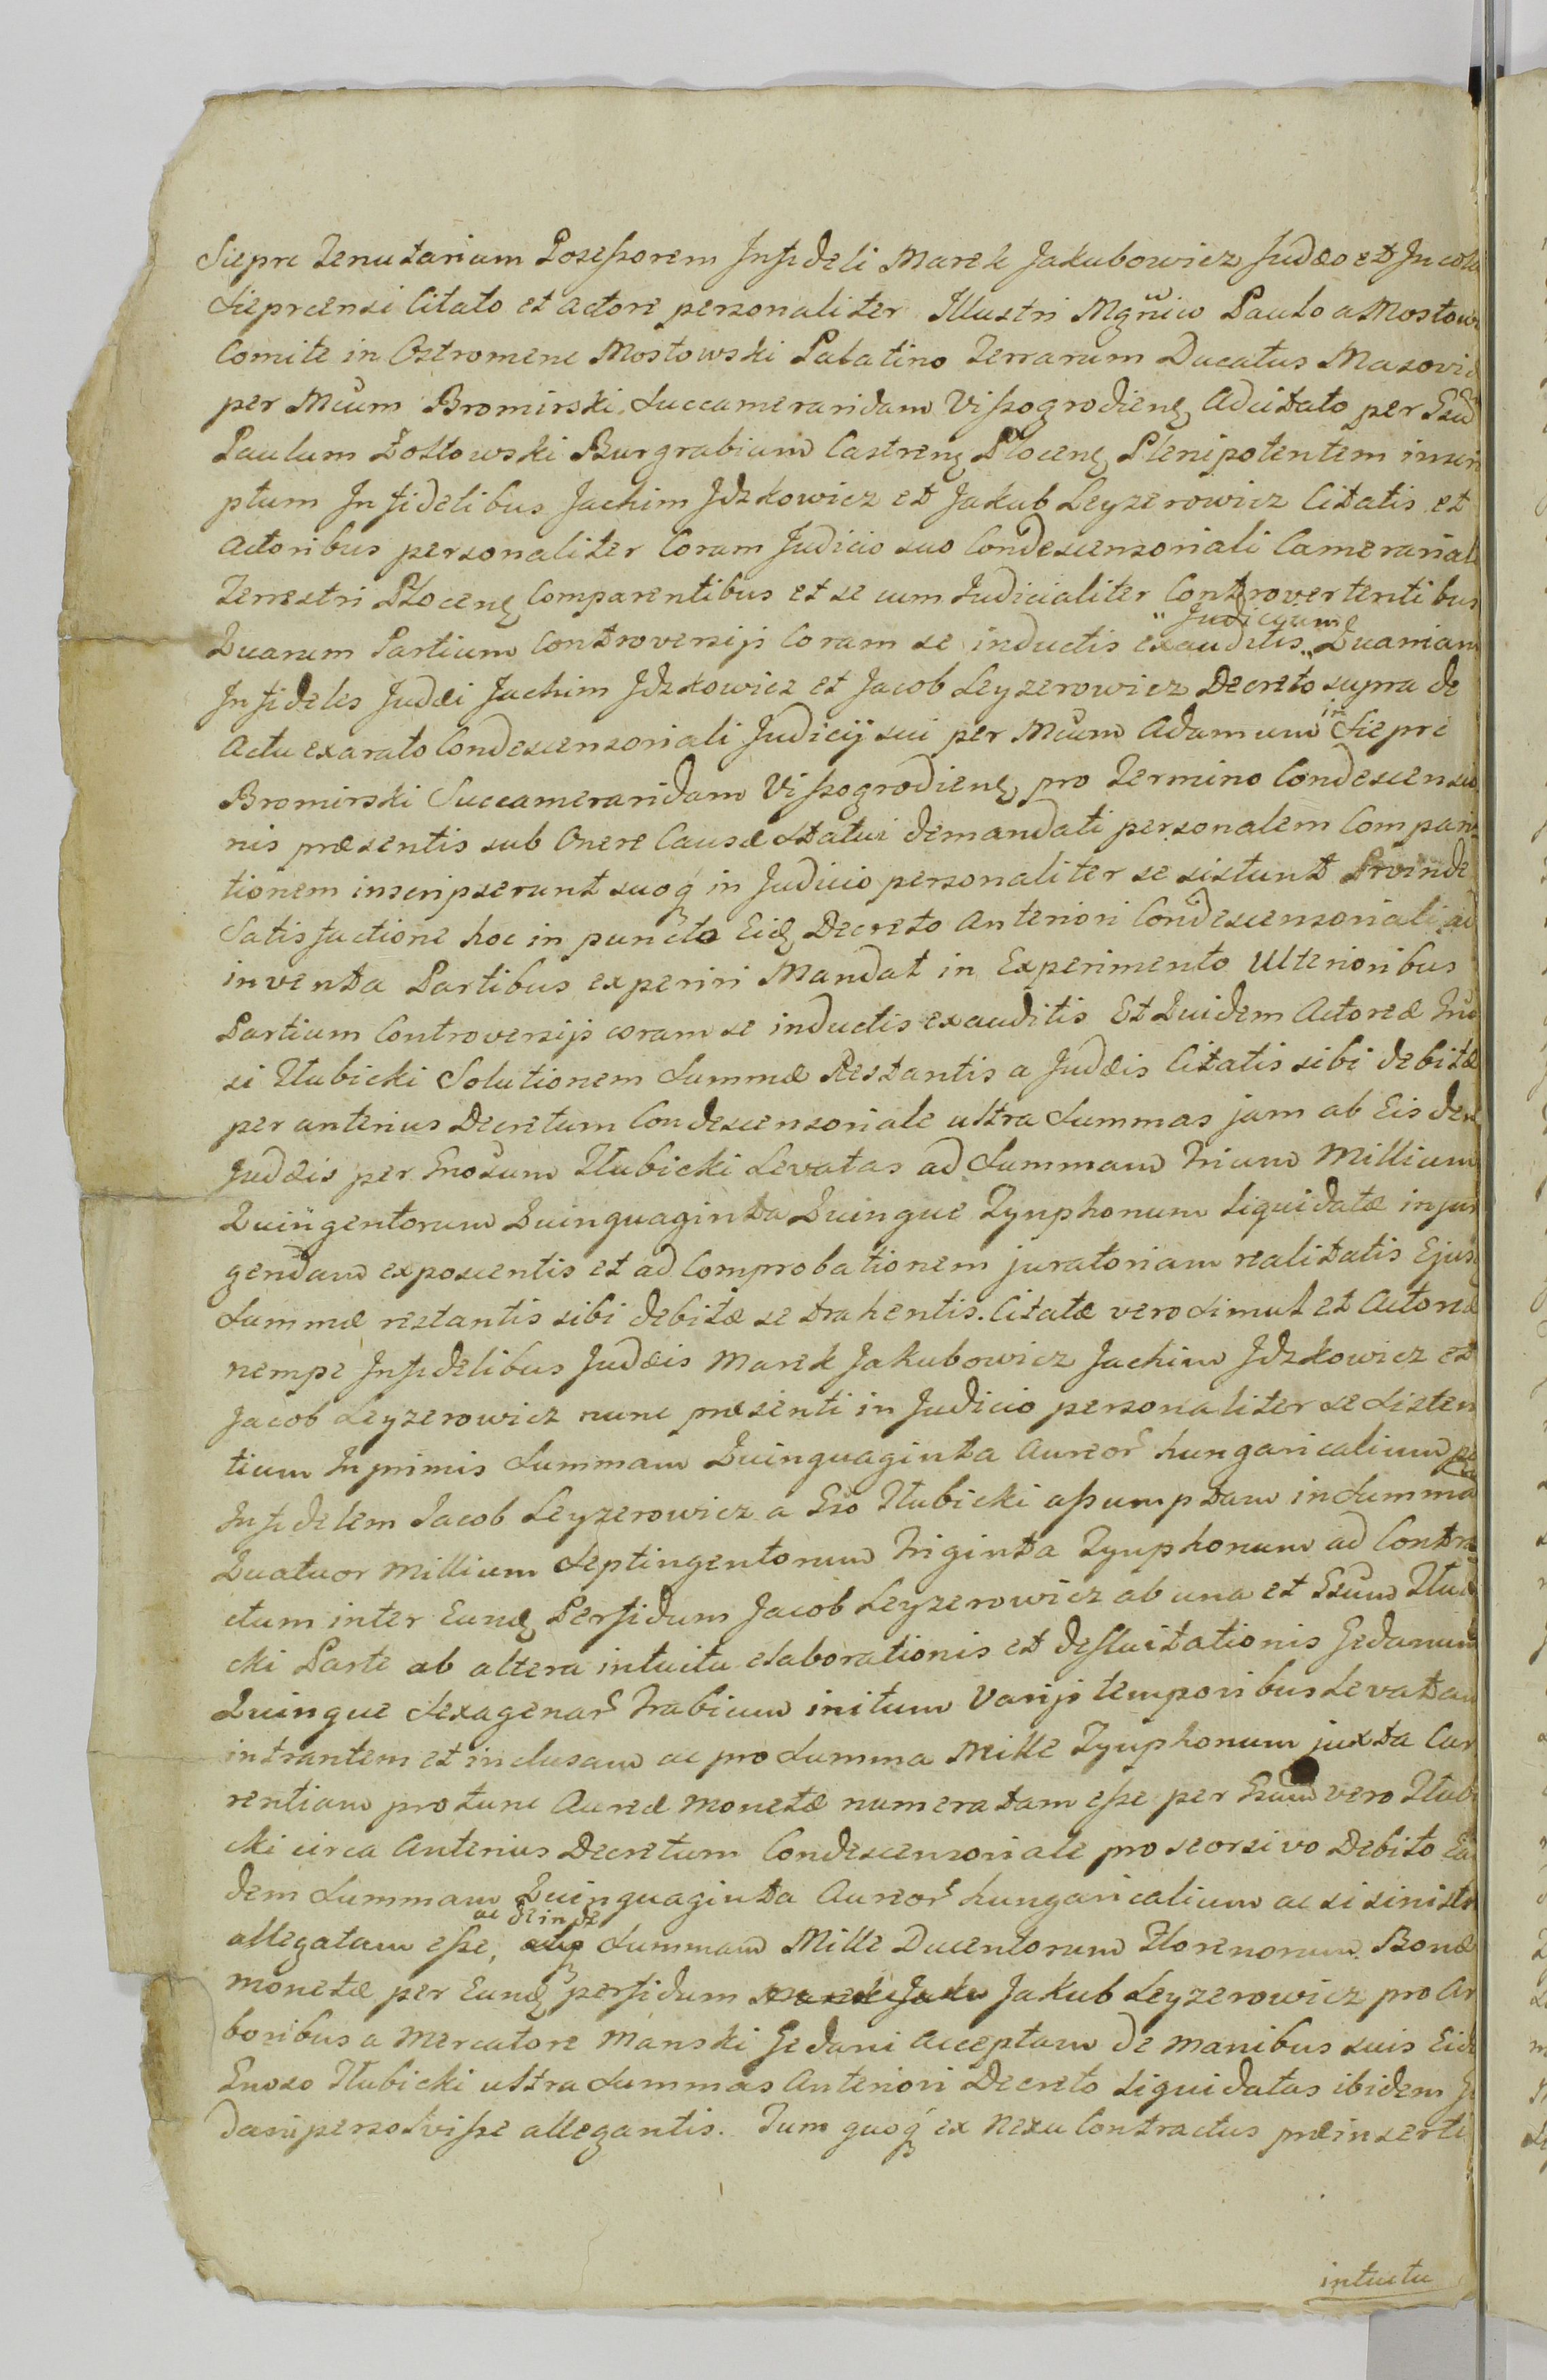 Siepre Tenutarium Poseßorem Infideli Marek Jakubowicz Judæo et Incola
Sieprcensi Citato et Actore personaliter Illustri Mgnico Paulo a Mostow
Comite in Ostromene Mostowski Palatino Terrarum Ducatus Masoviæ
per Mcum Bromirski Succameraridam Vißogrodiens Adcitato per
Paulum Zoltowski Burgrabium Castrens Plocens Plenipotentem inscri
ptum Infidelibus Jachim Jdzkowicz et Jakub Leyzerowicz Citatis et
Actoribus personaliter Coram Judicio suo Condescensoriali Camerarial
Terrestri Plocens Comparentibus et se cum Judicialiter Controvertentibus
Quarum Partium Controversijs Coram se inductis exauditis Judicium Quaniam
Infideles Judæi Jachim Jdzkowicz et Jacob Leyzerowicz Decreto supra de
Actu exarato Condescensoriali Judicij sui per Mcum Adamum in Siepre
Bromirski Succameraridam Vißogrodiens pro Termino Condescensio
nis præsentis sub Onere Causæ Statui demandati personalem Compari
tionem inscripserunt suoq in Judicio personaliter se sistunt Proinde
Satisfactione hoc in puncto Eid Decreto Anteriori Condescensoriali ad
inventa Partibus experiri Mandat in Experimento Ulterioribus
Partium Controversijs coram se inductis exauditis Et Quidem Actoreæ
si Zlubicki Solutionem Summæ Restantis a Judæis Citatis sibi debitæ
per anterius Decretum Condescensoriale ultra Summas jam ab Eis dem
Judæis per Gnosum Zlubicki Levatas ad Summam Trium Millium
Quingentorum Quinquaginta Quinque Tynphonum liquidatæ injun
gendam exposcentis et ad Comprobationem juratoriam realitatis Ejusd
Summæ restantis sibi debitæ se trahentis. Citatæ vero simul et Actoreæ
nempe Infidelibus Judæis Marek Jakubowicz Jachim Jdzkowicz et
Jacob Leyzerowicz nunc præsenti in Judicio personaliter se Sisten
tium Inprimis Summam Quinquaginta Aureor hungaricalium per
Infidelem Jacob Leyzerowicz a Gso Zlubicki aßumptam in Summa
Quatuor Millium Septingentorum Triginta Tynphonum ad Contra
ctum inter Eund Perfidum Jacob Leyzerowicz ab una et Gsum Zlubi
cki Parte ab altera intuitu elaborationis et defluitationis Gedanum
Quinque Sexagenar Trabium initum Varijs temporibus Levatam
intrantem et inclusam ac pro Summa Mille Tynphonum juxta Cur
rentiam protunc Aureæ Monetæ numeratam eße per Gsum vero Zlubi
cki circa Anterius Decretum Condescensoriale pro seorsivo Debito Ean
dem Summam Quinquaginta Aureor hungaricalium ac si sinistre
allegatam eße, ac deinde Summam Mille Ducentorum Florenorum Bonæ
Monetæ per Eund perfidum Marek Jaku Jakub Leyzerowicz pro Ar
boribus a Mercatore Manski Gedani Acceptam de manibus suis Eid
Gnoso Zlubicki ultra Summas Anteriori Decreto liquidatas ibidem Ge
dani persolviße allegantis. Tum quoq ex Nexu Contractus præinserti
intuitu